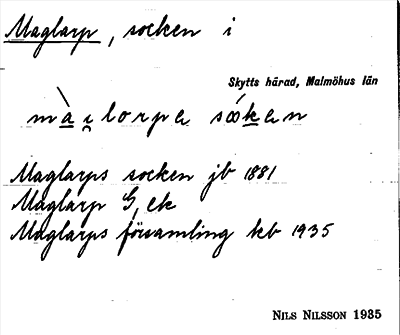 Maglarp, socken i
Skytts härad, Malmöhus län
Maglarps socken jb 1881
Maglarp G, ek
Maglarps församling kb 1935
NILS NILSSON 1935